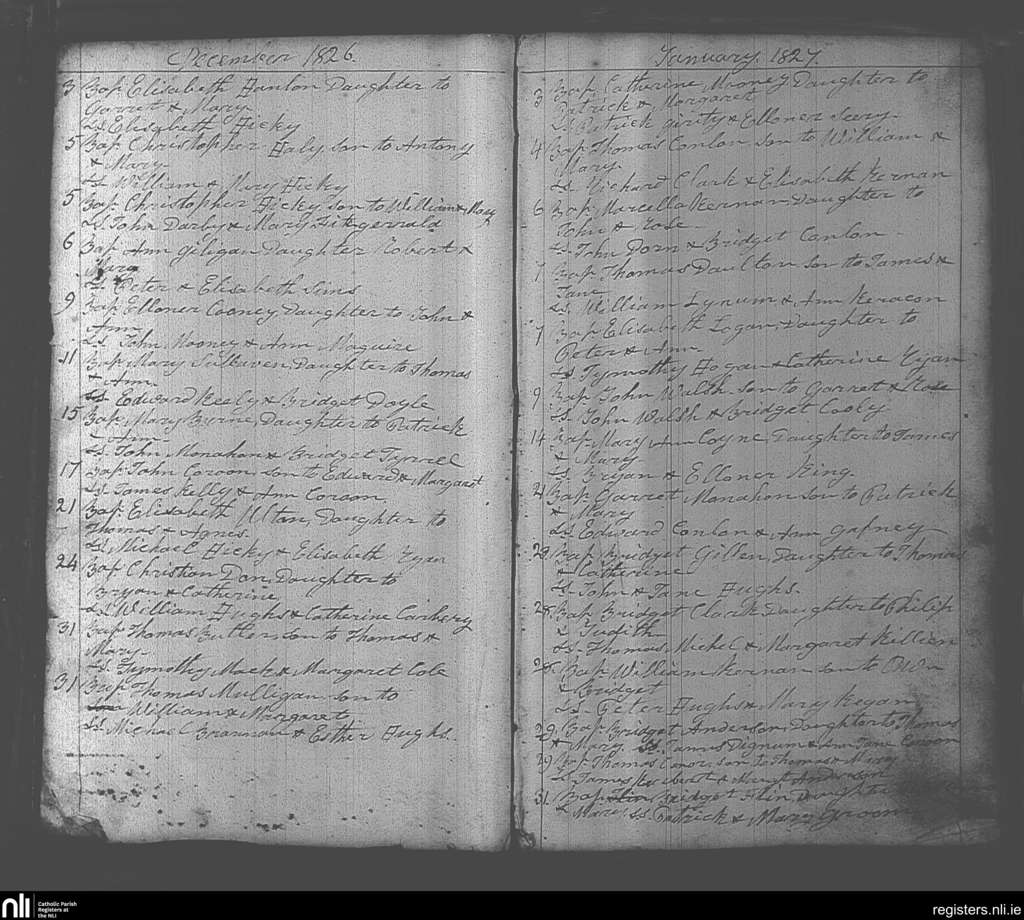 December 1826.
3 Bap Elisabeth Hanlon Daughter to
Garret & Mary
Ss Elisabeth Hicky
5 Bap Christopher Haly son to Antony
& Mary
Ss William & Mary Hicky
5 Bap Christopher Hicky son to William & Mary
Ss John Darby & Mary Fitzgerrald
6 Bap Ann Giligan Daughter Robert &
Mary
Ss Peter & Elisabeth Sims
9 Bap Elloner Cooney Daughter to John &
Ann
Ss John Mooney & Ann Maguire
11 Bap Mary Sullaven Daughter to Thomas
& Ann
Ss Edward Keely & Bridget Doyle
15 Bap Mary Byrne Daughter to Patrick
& Ann
Ss John Monahan & Bridget Tyrrel
17 Bap John Coroon son to Edward & Margaret
Ss James Kelly & Ann Coroon
21 Bap Elisabeth Ultan Daughter to
Thomas & Agnes
Ss Michael Hicky & Elisabeth Ryan
24 Bap Christian Don Daughter to
Bryan & Catherine
Ss William Hughs & Catherine Carbery
31 Bap Thomas Butler son to Thomas &
Mary
Ss Tymothy Mack & Margaret Cole
31 Bap Thomas Mulligan son to
William & Margaret
Ss Michael Brannan & Esther Hughs.
January 1827.
3 Bap Catherine Mooney Daughter to
Patrick & Margaret
Ss Patrick girity & Elloner Seery
4 Bap Thomas Conlon son to William &
Mary
Ss Richard Clark & Elisabeth Kernan
6 Bap Marcella Kernan Daughter to
John & Rose
Ss John Dorn & Bridget Conlon
7 Bap Thomas Daulton son to James &
Jane
Ss William Lynum & Ann Keracon
7 Bap Elisabeth Logan Daughter to
Peter & Ann
Ss Tymothy Hogan & Catherine Ryan
9 Bap John Walsh son to Garret & Rose
Ss John Walsh & Bridget Cooly
14 Bap Mary Ann Coyne Daughter to James
& Mary
Ss Bryan & Elloner King
21 Bap Garret Monahon son to Patrick
& Mary
Ss Edward Conlon & Ann Gafney
28 Bap Bridget Gillen Daughter to Thomas
& Catherine
Ss John & Jane Hughs.
28 Bap Bridget Clark Daughter to Philip
& Judith
Ss Thomas Michel & Margaret Killian
28 Bap William Kernan son to Owen
& Bridget
Ss Peter Hughs & Mary Regan
29 Bap Bridget Anderson Daughter to Thomas
& Mary Ss James Dignum & Ann Jane Coroon
29 Bap Thomas Conor son to Thomas & Mary
Ss James & Anderson
31 Bap Bridget Daughter
& Mary Ss Patrick & Mary Groom
nli
Catholic Parish
Registers at
the NLI
registers.nli.ie